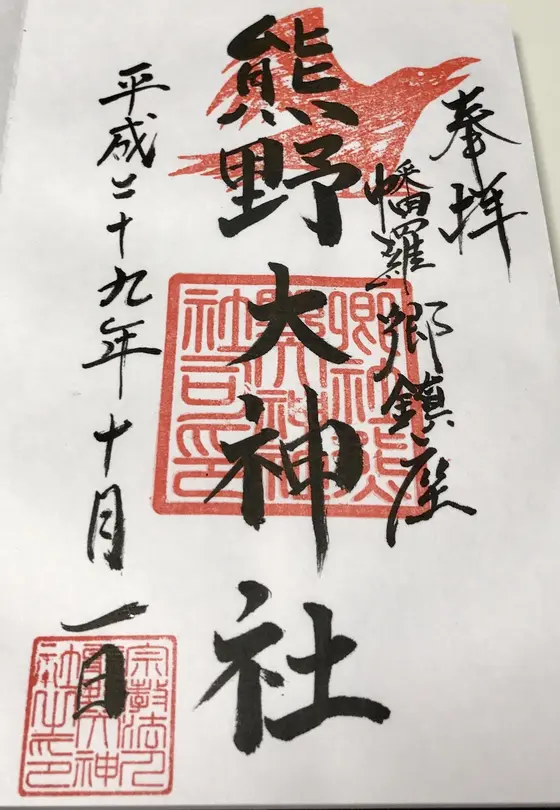 奉拝
幡羅郷鎮座
熊野大神社
平成二十九年十月一日
宗教法人